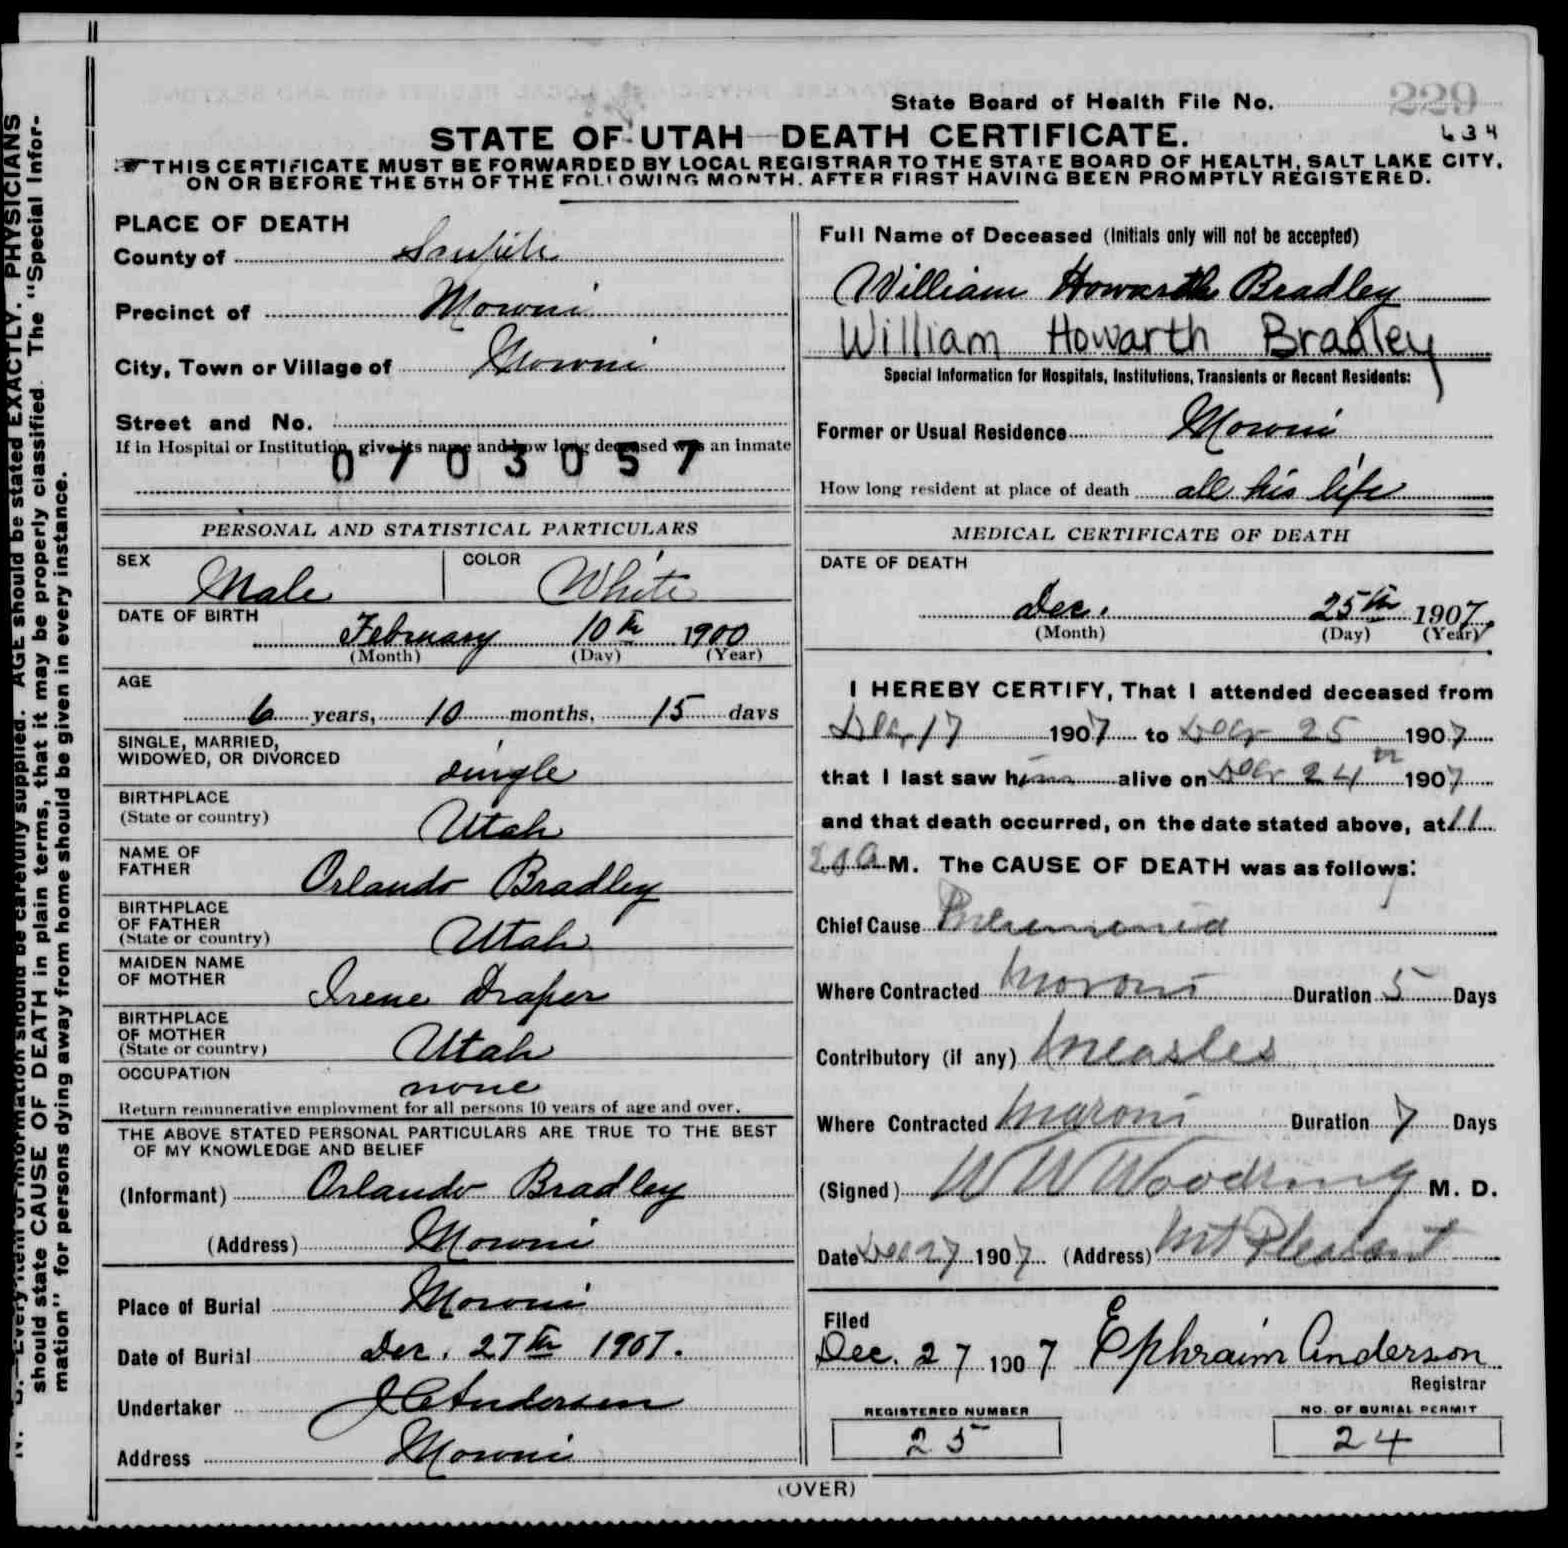 N. B.—Every item of information should be carefully supplied. AGE should be stated EXACTLY. PHYSICIANS
should state CAUSE OF DEATH in plain terms, that it may be properly classified. The "Special Infor-
mation" for persons dying away from home should be given in every instance.
State Board of Health File No. 229
STATE OF UTAH—DEATH CERTIFICATE.
634
THIS CERTIFICATE MUST BE FORWARDED BY LOCAL REGISTRAR TO THE STATE BOARD OF HEALTH, SALT LAKE CITY,
ON OR BEFORE THE 5TH OF THE FOLLOWING MONTH, AFTER FIRST HAVING BEEN PROMPTLY REGISTERED.
PLACE OF DEATH
County of Sanpete
Precinct of Moroni
City, Town or Village of Moroni
Street and No.
If in Hospital or Institution, give its name and how long deceased was an inmate
0703057
PERSONAL AND STATISTICAL PARTICULARS
SEX Male COLOR White
DATE OF BIRTH
February 10th 1900
(Month) (Day) (Year)
AGE
6 years, 10 months, 15 days
SINGLE, MARRIED,
WIDOWED, OR DIVORCED single
BIRTHPLACE
(State or country) Utah
NAME OF
FATHER Orlando Bradley
BIRTHPLACE
OF FATHER
(State or country) Utah
MAIDEN NAME
OF MOTHER Irene Draper
BIRTHPLACE
OF MOTHER
(State or country) Utah
OCCUPATION none
Return remunerative employment for all persons 10 years of age and over.
THE ABOVE STATED PERSONAL PARTICULARS ARE TRUE TO THE BEST
OF MY KNOWLEDGE AND BELIEF
(Informant) Orlando Bradley
(Address) Moroni
Place of Burial Moroni
Date of Burial Dec. 27th 1907.
Undertaker J C Andersen
Address Moroni
Full Name of Deceased (Initials only will not be accepted)
William Howarth Bradley
William Howarth Bradley
Special Information for Hospitals, Institutions, Transients or Recent Residents:
Former or Usual Residence Moroni
How long resident at place of death all his life
MEDICAL CERTIFICATE OF DEATH
DATE OF DEATH
Dec. 25th 1907.
(Month) (Day) (Year)
I HEREBY CERTIFY, That I attended deceased from
Dec 17 1907 to Dec 25 1907
that I last saw him alive on Dec 24th 1907
and that death occurred, on the date stated above, at 11
A M. The CAUSE OF DEATH was as follows:
Chief Cause Pneumonia
Where Contracted Moroni Duration 5 Days
Contributory (if any) Measles
Where Contracted Maroni Duration 7 Days
(Signed) W W Woodring M. D.
Date Dec 27 1907 (Address) Mt Pleasant
Filed
Dec. 27 1907 Ephraim Anderson
Registrar
REGISTERED NUMBER
25
NO. OF BURIAL PERMIT
24
(OVER)